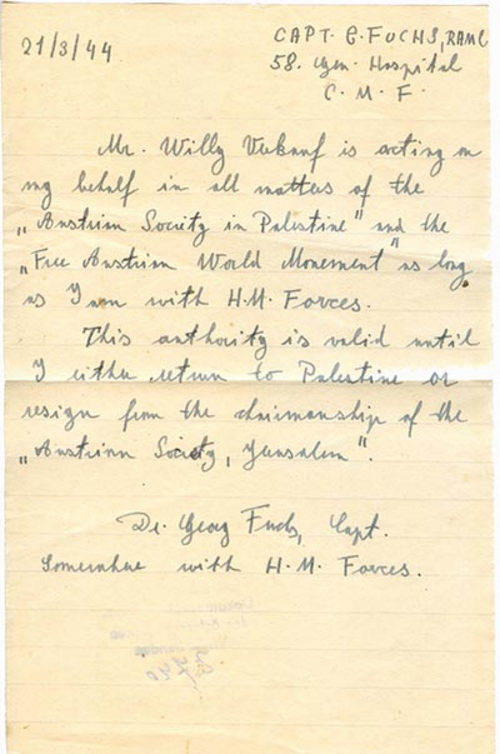 21/3/44
CAPT. G. FUCHS, RAMC
58. Gen. Hospital
C. M. F.
Mr. Willy Verkauf is acting on
my behalf in all matters of the
„Austrian Society in Palestine" and the
„Free Austrian World Movement" as long
as I am with H.M. Forces.
This authority is valid until
I either return to Palestine or
resign from the chairmanship of the
„Austrian Society, Jerusalem".
Dr. Georg Fuchs, Capt.
Somewhere with H.M. Forces.